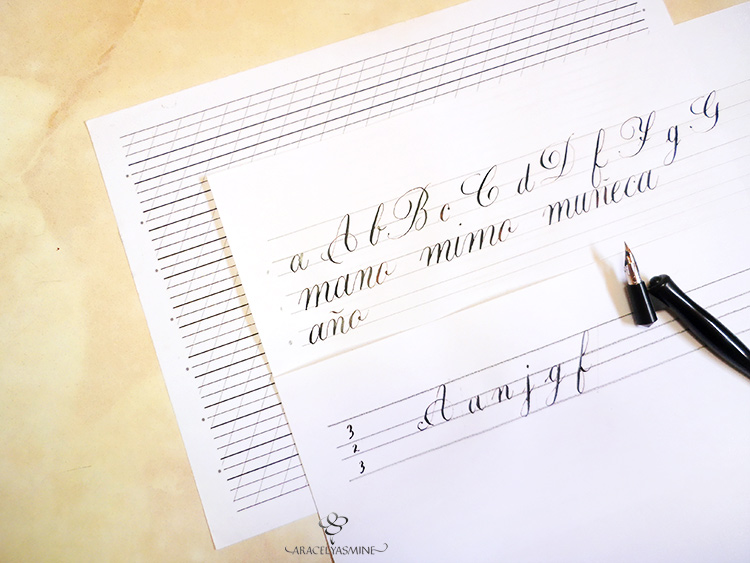 a A b B c C d D f F g G
mano mimo muñeca
año
A a n j g f
3
2
3
ARACELYASMINE